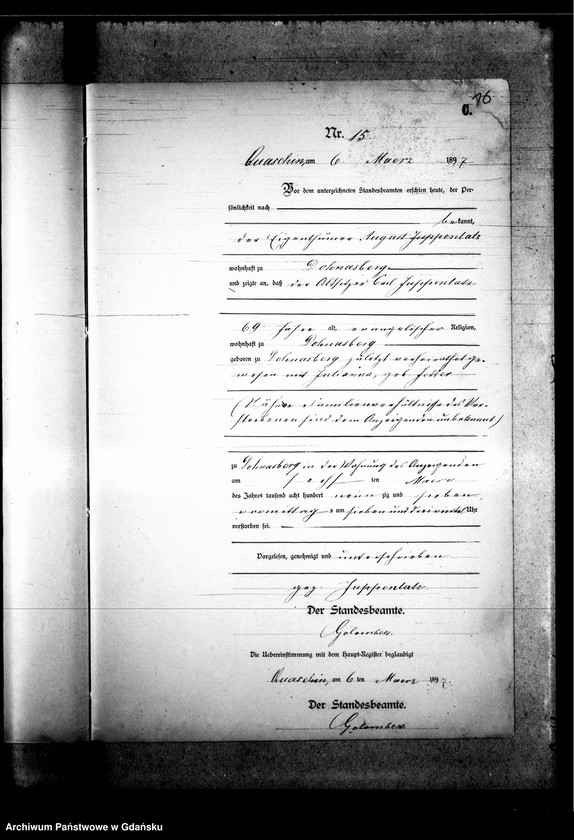 76
C.
Nr. 15
Quaschin, am 6 Maerz 1897
Vor dem unterzeichneten Standesbeamten erschien heute, der Per-
sönlichkeit nach
bekannt,
der Eigenthümer August
wohnhaft zu Dohnasberg
und zeigte an, daß der Altsitzer Carl
69 Jahre alt, evangelischer Religion,
wohnhaft zu Dohnasberg
geboren zu Dohnasberg zuletzt verheirathet ge-
wesen mit Julianna, geb.
(Nähere Familienverhältnisse des Ver-
storbenen sind dem Anzeigenden unbekannt)
zu Dohnasberg in der Wohnung des Anzeigenden
am sechsten Maerz
des Jahres tausend acht hundert neunzig und sieben,
vormittags um sieben und dreiviertel Uhr
verstorben sei.
Vorgelesen, genehmigt und unterschrieben
gez.
Der Standesbeamte.
Golombek.
Die Uebereinstimmung mit dem Haupt-Register beglaubigt
Quaschin, am 6 ten Maerz 1897.
Der Standesbeamte.
Golombek
Archiwum Państwowe w Gdańsku